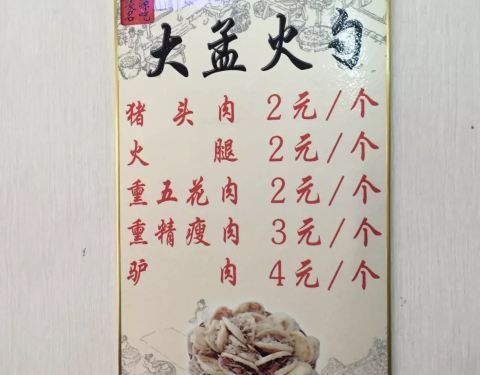 大孟火勺
猪头肉 2元/个
火腿 2元/个
熏五花肉 2元/个
熏精瘦肉 3元/个
驴肉 4元/个